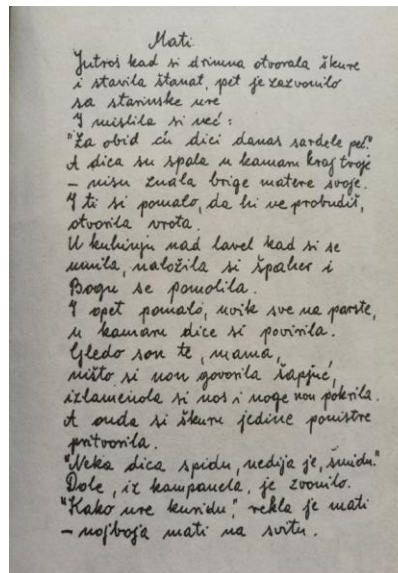 Mati
Jutros kad si drimna otvorala škure
i stavila štanat, pet je zazvonilo
sa starinske ure
I mislila si već:
"Za obid ću dici danas sardele peć."
A dica su spala u kamari kraj tvoje
– nisu znala brige matere svoje.
I ti si pomalo, da hi ne probudiš,
otvorila vrota.
U kuhinju nad lavel kad si se
umila, naložila si špaher i
Bogu se pomolila.
I opet pomalo, uvik sve na parste,
u kamaru dice si povirila.
Gledo son te, mama,
ništo si non govorila šapjuć,
izlamenola si nos i noge non pokrila.
A onda si škuru jedine ponistre
pritvorila.
"Neka dica spidu, nedija je, šnidu."
Dole, iz kampanela, je zvonilo.
"Kako ure kuridu," rekla je mati
– nojboja mati na svitu.